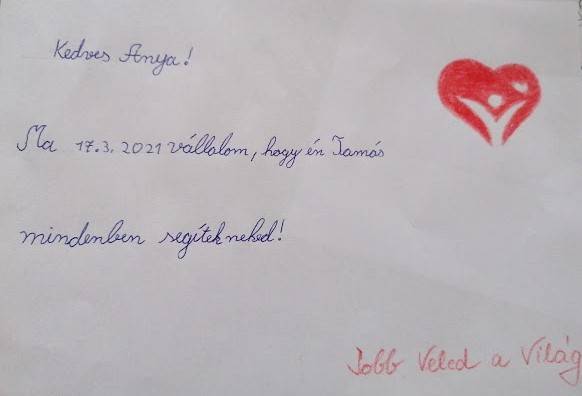 Kedves Anya!
Ma 17.3.2021 vállalom, hogy én Tamás
mindenben segítek neked!
Jobb Veled a Világ